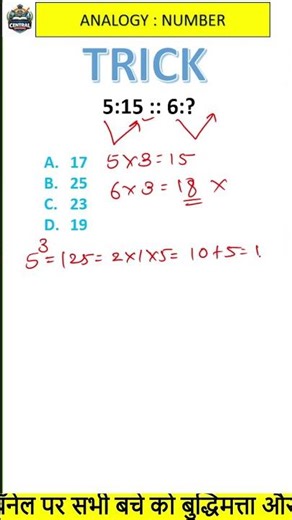 CENTRAL
ANALOGY : NUMBER
TRICK
5:15 :: 6:?
A. 17 5×3=15
B. 25 6×3=18 ×
C. 23
D. 19
5³=125=2×1×5=10+5=1
चैनल पर सभी बचे को बुद्धिमत्ता और